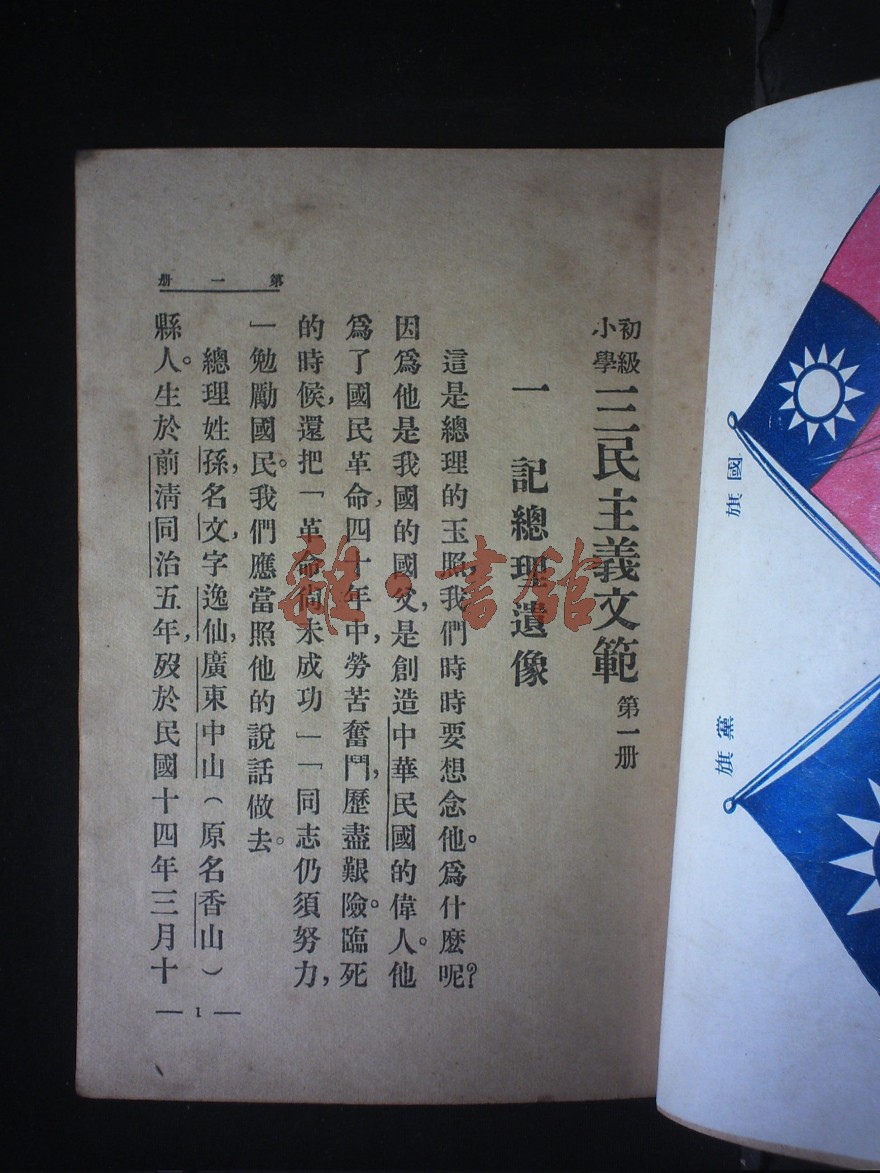 國旗
黨旗
初級小學三民主義文範 第一册
一 記總理遺像
這是總理的玉照,我們時時要想念他。爲什麽呢?
因爲他是我國的國父,是創造中華民國的偉人。他
爲了國民革命,四十年中,勞苦奮鬥,歷盡艱險。臨死
的時候,還把「革命尙未成功」「同志仍須努力,
一勉勵國民。我們應當照他的說話做去。
總理姓孫,名文,字逸仙,廣東中山(原名香山)
縣人。生於前清同治五年,歿於民國十四年三月十
第一册
— 1 —
雜·書館